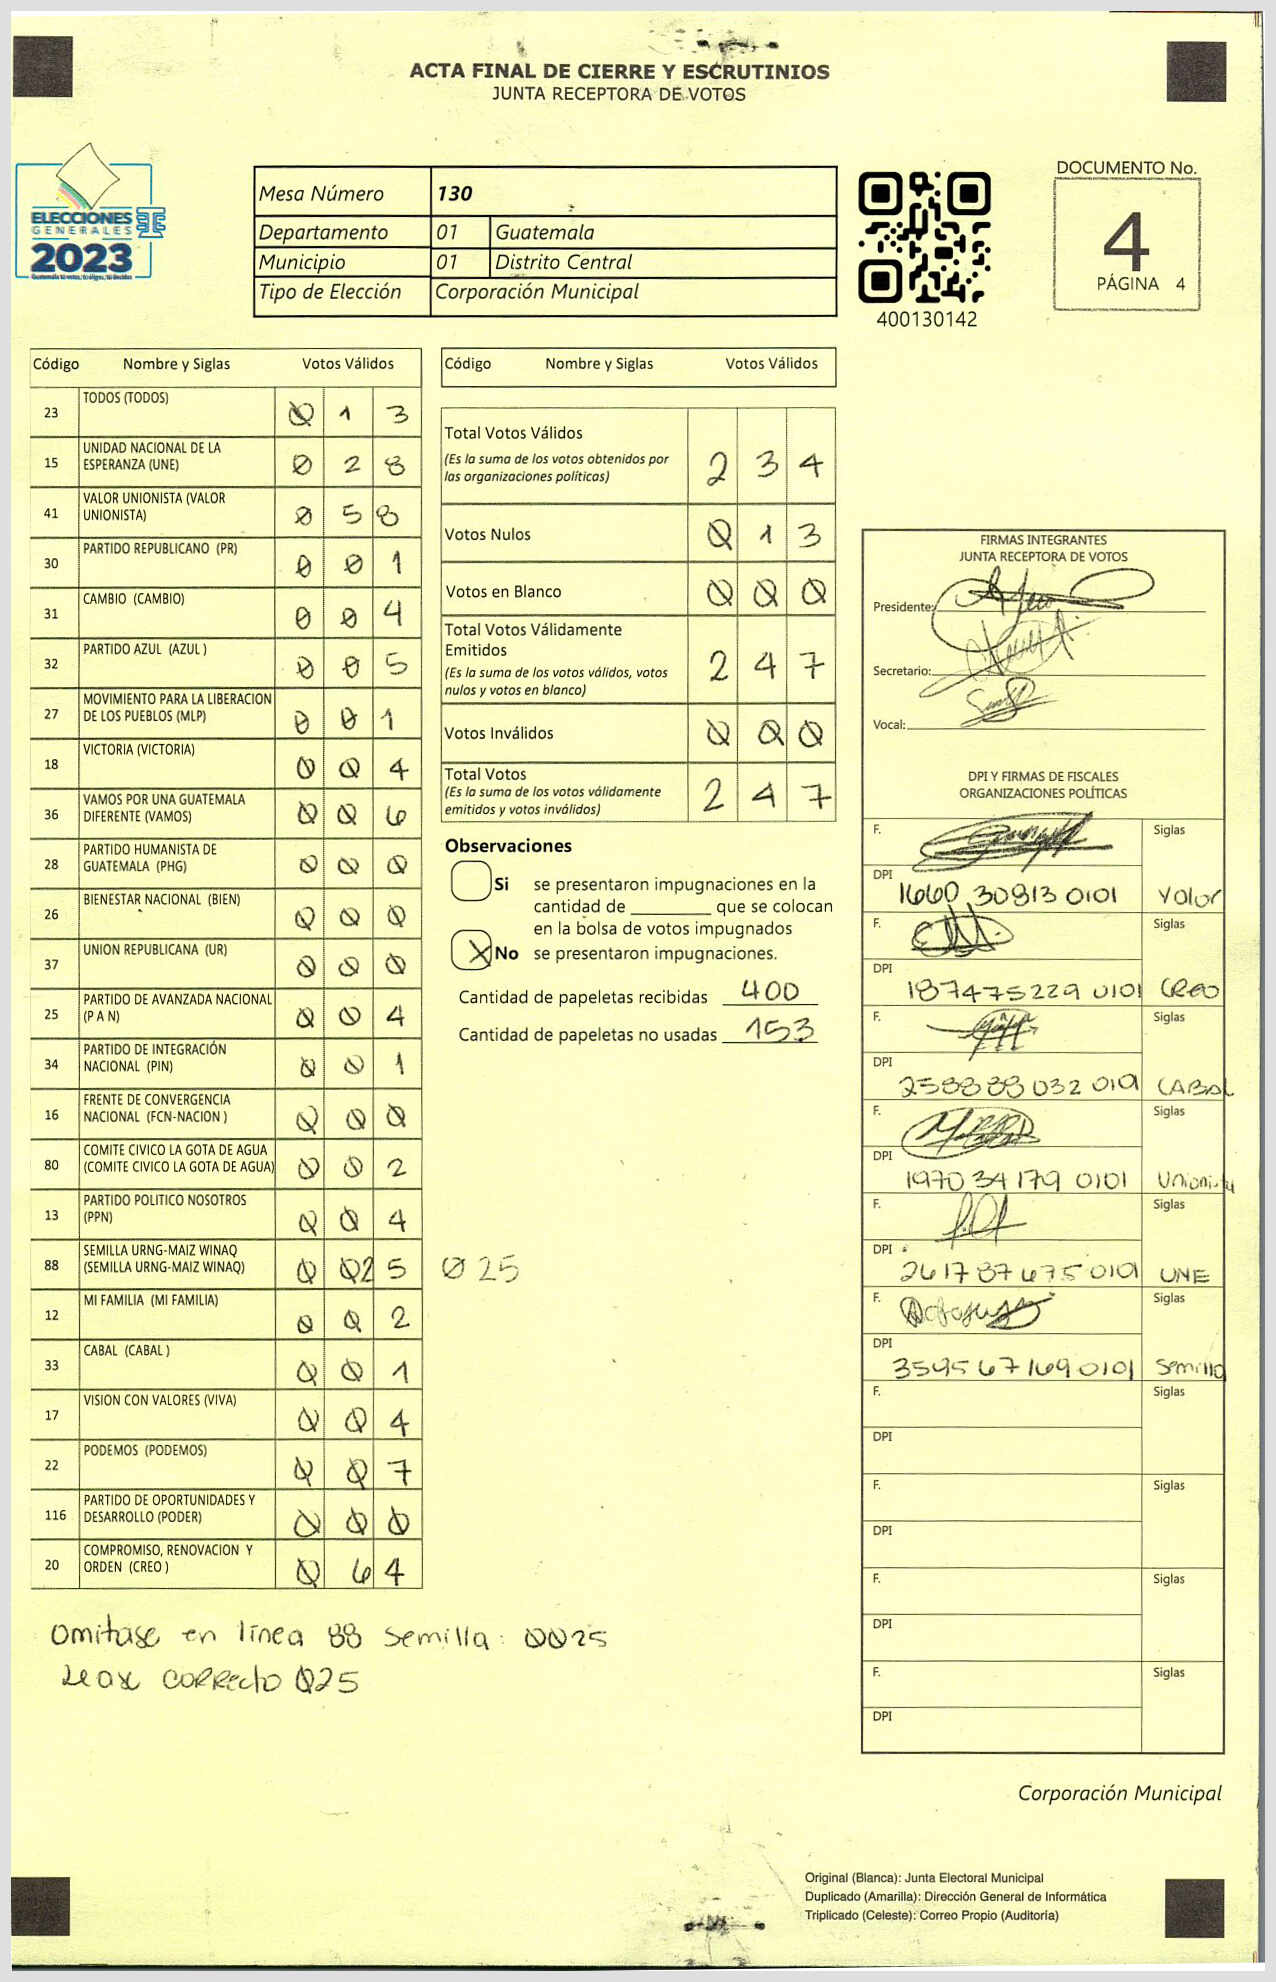 ACTA FINAL DE CIERRE Y ESCRUTINIOS
JUNTA RECEPTORA DE VOTOS
ELECCIONES
GENERALES
2023
Mesa Número 130
Departamento 01 Guatemala
Municipio 01 Distrito Central
Tipo de Elección Corporación Municipal
400130142
DOCUMENTO No.
4
PÁGINA 4
Código Nombre y Siglas Votos Válidos
23 TODOS (TODOS) 0 1 3
15 UNIDAD NACIONAL DE LA ESPERANZA (UNE) 0 2 8
41 VALOR UNIONISTA (VALOR UNIONISTA) 0 5 8
30 PARTIDO REPUBLICANO (PR) 0 0 1
31 CAMBIO (CAMBIO) 0 0 4
32 PARTIDO AZUL (AZUL ) 0 0 5
27 MOVIMIENTO PARA LA LIBERACION DE LOS PUEBLOS (MLP) 0 0 1
18 VICTORIA (VICTORIA) 0 0 4
36 VAMOS POR UNA GUATEMALA DIFERENTE (VAMOS) 0 0 6
28 PARTIDO HUMANISTA DE GUATEMALA (PHG) 0 0 0
26 BIENESTAR NACIONAL (BIEN) 0 0 0
37 UNION REPUBLICANA (UR) 0 0 0
25 PARTIDO DE AVANZADA NACIONAL (P A N) 0 0 4
34 PARTIDO DE INTEGRACIÓN NACIONAL (PIN) 0 0 1
16 FRENTE DE CONVERGENCIA NACIONAL (FCN-NACION ) 0 0 0
80 COMITE CIVICO LA GOTA DE AGUA (COMITE CIVICO LA GOTA DE AGUA) 0 0 2
13 PARTIDO POLITICO NOSOTROS (PPN) 0 0 4
88 SEMILLA URNG-MAIZ WINAQ (SEMILLA URNG-MAIZ WINAQ) 0 02 5 025
12 MI FAMILIA (MI FAMILIA) 0 0 2
33 CABAL (CABAL ) 0 0 1
17 VISION CON VALORES (VIVA) 0 0 4
22 PODEMOS (PODEMOS) 0 0 7
116 PARTIDO DE OPORTUNIDADES Y DESARROLLO (PODER) 0 0 0
20 COMPROMISO, RENOVACION Y ORDEN (CREO ) 0 6 4
Omitase en línea 88 Semilla: 0025
Lease correcto 025
Código Nombre y Siglas Votos Válidos
Total Votos Válidos 2 3 4
(Es la suma de los votos obtenidos por
las organizaciones políticas)
Votos Nulos 0 1 3
Votos en Blanco 0 0 0
Total Votos Válidamente
Emitidos 2 4 7
(Es la suma de los votos válidos, votos
nulos y votos en blanco)
Votos Inválidos 0 0 0
Total Votos 2 4 7
(Es la suma de los votos válidamente
emitidos y votos inválidos)
Observaciones
Si se presentaron impugnaciones en la
cantidad de ________ que se colocan
en la bolsa de votos impugnados
X No se presentaron impugnaciones.
Cantidad de papeletas recibidas 400
Cantidad de papeletas no usadas 153
FIRMAS INTEGRANTES
JUNTA RECEPTORA DE VOTOS
Presidente:
Secretario:
Vocal:
DPI Y FIRMAS DE FISCALES
ORGANIZACIONES POLÍTICAS
F. Siglas
DPI 1660 30813 0101 Valor
F. Siglas
DPI 187475229 0101 CREO
F. Siglas
DPI 258888032 0101 CABAL
F. Siglas
DPI 1970 34179 0101 Unionista
F. Siglas
DPI 261787675 0101 UNE
F. Siglas
DPI 3595671690101 Semilla
F. Siglas
DPI
F. Siglas
DPI
F. Siglas
DPI
F. Siglas
DPI
Corporación Municipal
Original (Blanca): Junta Electoral Municipal
Duplicado (Amarilla): Dirección General de Informática
Triplicado (Celeste): Correo Propio (Auditoría)